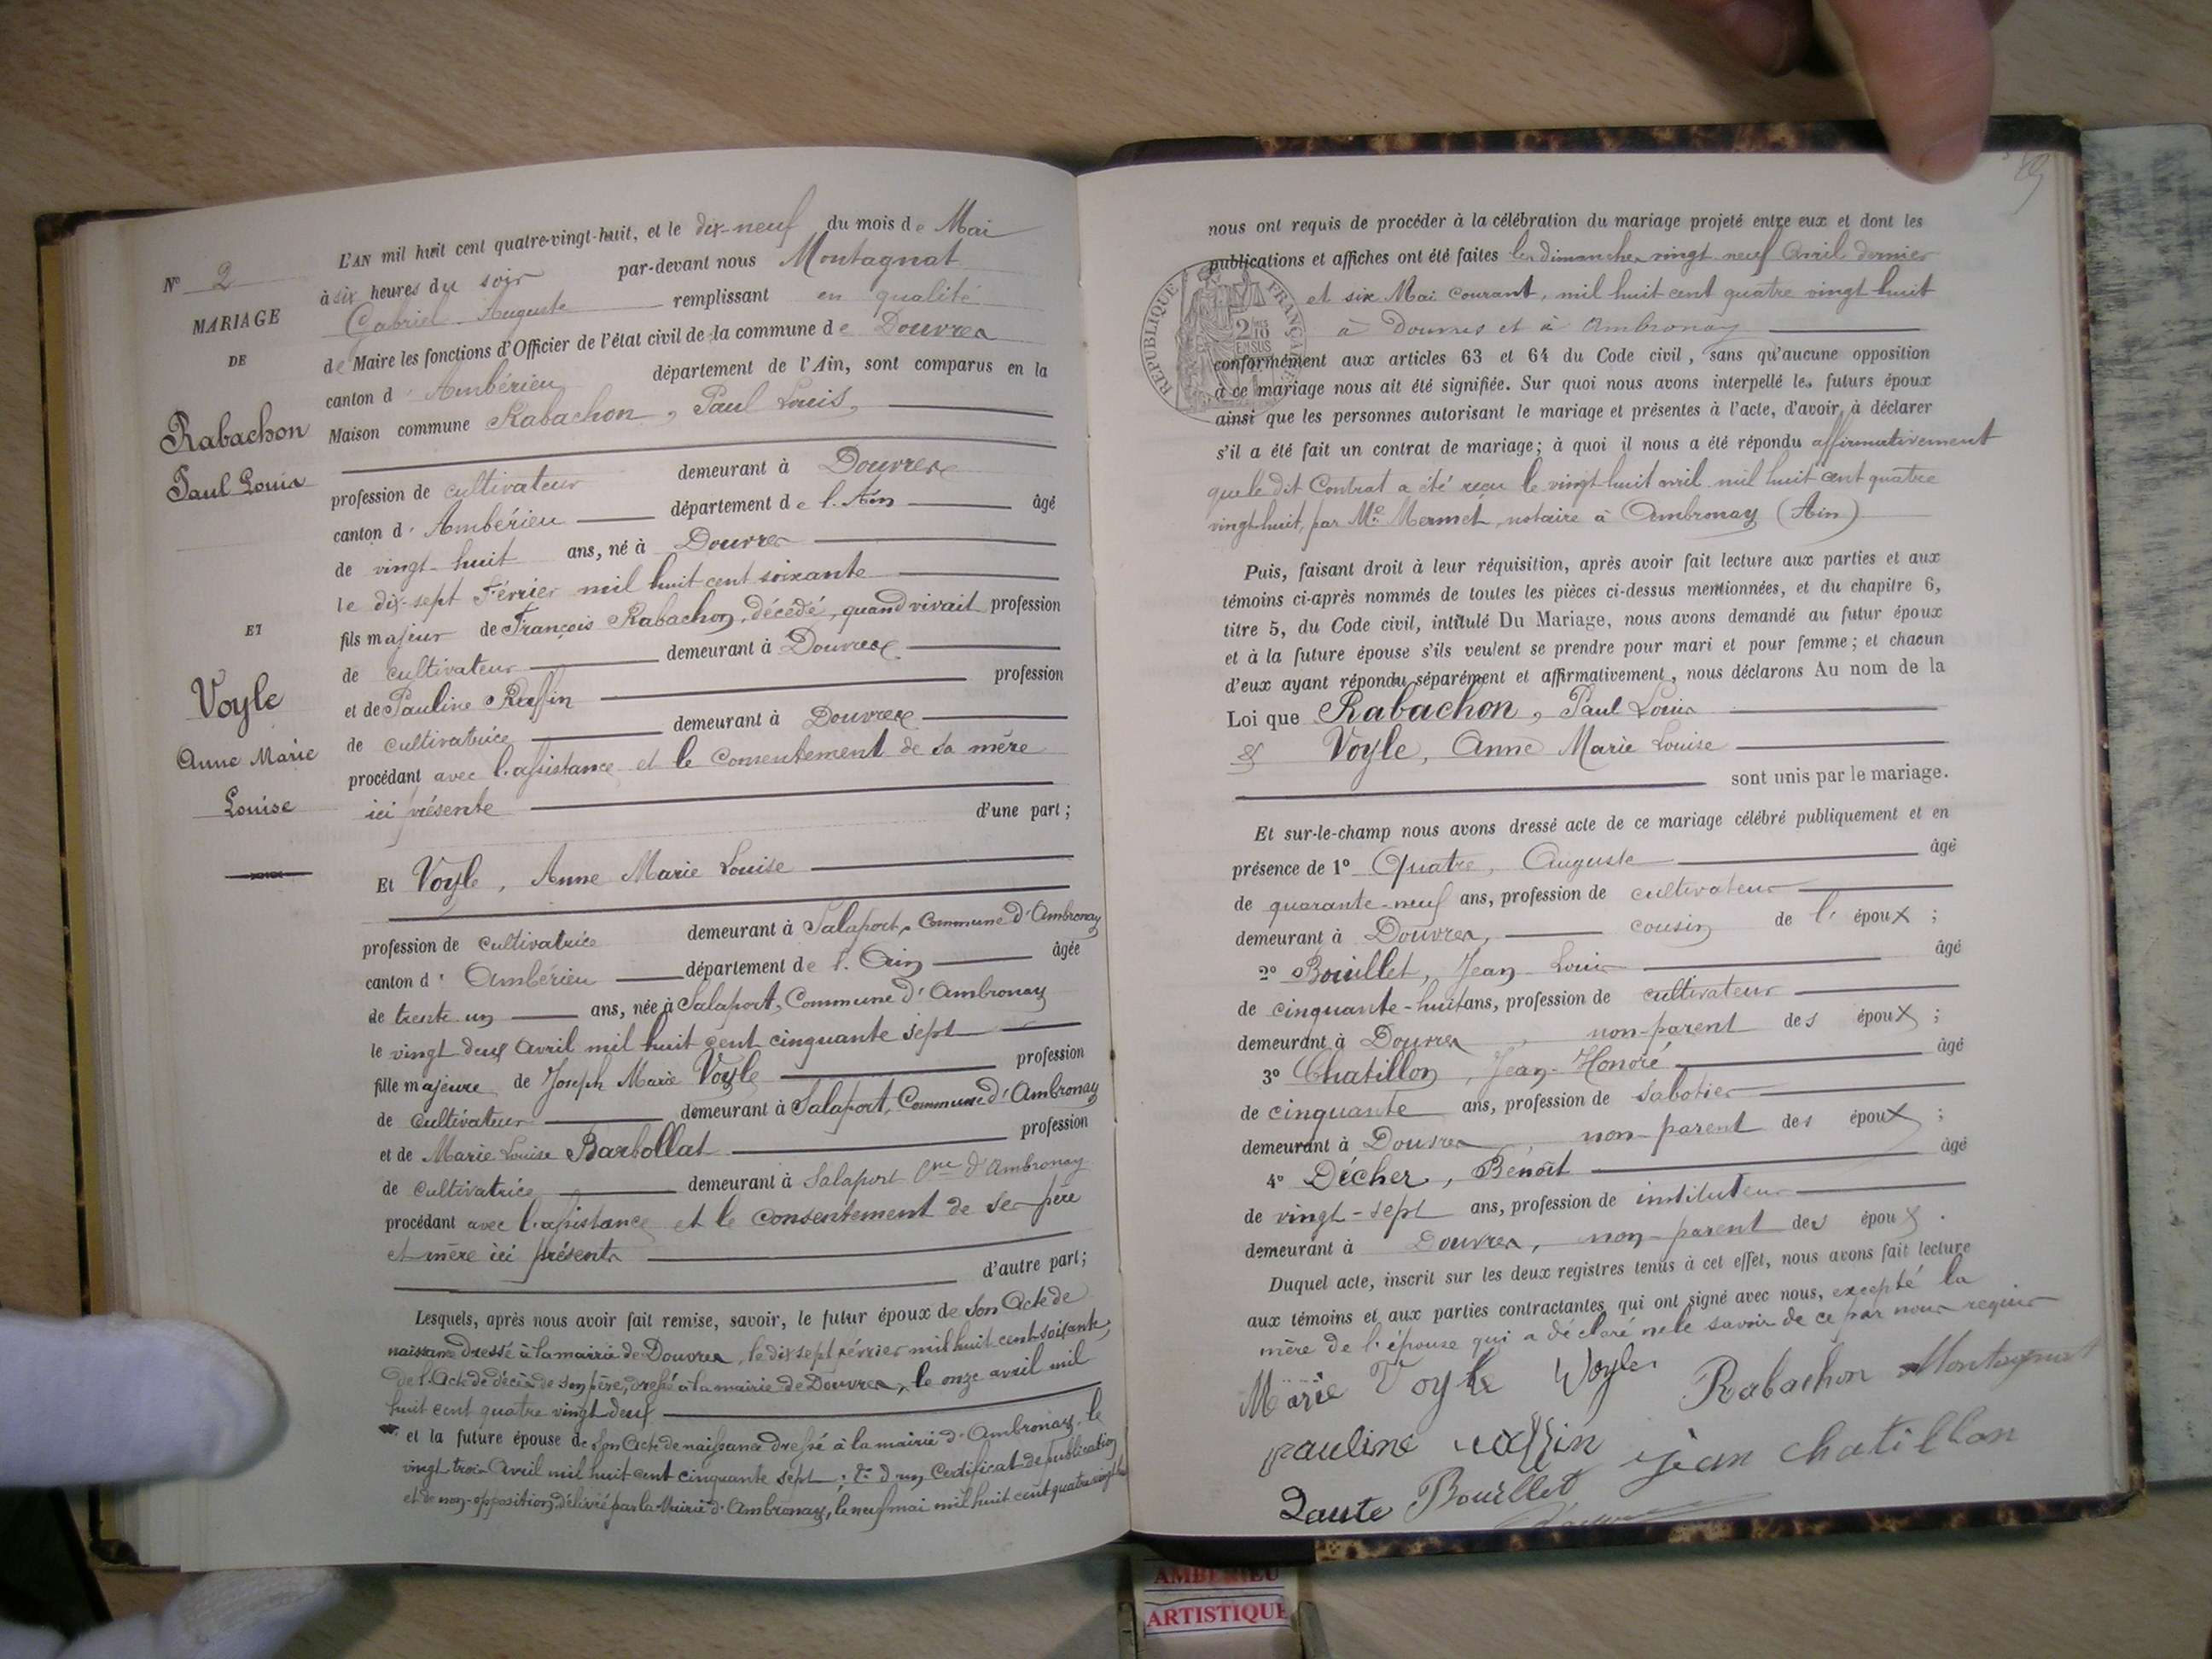 N° 2
MARIAGE
DE
Rabachon
Paul Louis
ET
Voyle
Anne Marie
Louise
L'AN mil huit cent quatre-vingt-huit, et le dix-neuf du mois de Mai
à six heures du soir par-devant nous Montagnat
Gabriel Auguste remplissant en qualité
de Maire les fonctions d'Officier de l'état civil de la commune de Douvres
canton d' Ambérieu département de l'Ain, sont comparus en la
Maison commune Rabachon, Paul Louis,
profession de cultivateur demeurant à Douvres
canton d' Ambérieu département de l'Ain âgé
de vingt-huit ans, né à Douvres
le dix-sept Février mil huit cent soixante
fils majeur de François Rabachon, décédé, quand vivait profession
de cultivateur demeurant à Douvres
et de Pauline Ruffin profession
de cultivatrice demeurant à Douvres
procédant avec l'assistance et le consentement de sa mère
ici présente d'une part;
Et Voyle, Anne Marie Louise
profession de cultivatrice demeurant à Salaport, Commune d'Ambronay
canton d' Ambérieu département de l'Ain âgée
de trente un ans, née à Salaport, Commune d'Ambronay
le vingt deux Avril mil huit cent cinquante sept
fille majeure de Joseph Marie Voyle profession
de cultivateur demeurant à Salaport, Commune d'Ambronay
et de Marie Louise Barbollat profession
de cultivatrice demeurant à Salaport Cne d'Ambronay
procédant avec l'assistance et le consentement de ses père
et mère ici présents
d'autre part;
Lesquels, après nous avoir fait remise, savoir, le futur époux de son Acte de
naissance dressé à la mairie de Douvres, le dix sept février mil huit cent soixante,
de l'Acte de décès de son père, dressé à la mairie de Douvres, le onze avril mil
huit cent quatre vingt deux
et la future épouse de son Acte de naissance dressé à la mairie d'Ambronay, le
vingt trois Avril mil huit cent cinquante sept; d'un Certificat de publication
et de non-opposition délivré par la Mairie d'Ambronay, le neuf mai mil huit cent quatre vingt
nous ont requis de procéder à la célébration du mariage projeté entre eux et dont les
publications et affiches ont été faites les dimanches vingt neuf Avril dernier
et six Mai courant, mil huit cent quatre vingt huit
à Douvres et à Ambronay
REPUBLIQUE FRANÇAISE
2/10 EN SUS
conformément aux articles 63 et 64 du Code civil, sans qu'aucune opposition
à ce mariage nous ait été signifiée. Sur quoi nous avons interpellé les futurs époux
ainsi que les personnes autorisant le mariage et présentes à l'acte, d'avoir à déclarer
s'il a été fait un contrat de mariage; à quoi il nous a été répondu affirmativement
que le dit Contrat a été reçu le vingt-huit avril mil huit cent quatre
vingt-huit, par Me Mermet, notaire à Ambronay (Ain)
Puis, faisant droit à leur réquisition, après avoir fait lecture aux parties et aux
témoins ci-après nommés de toutes les pièces ci-dessus mentionnées, et du chapitre 6,
titre 5, du Code civil, intitulé Du Mariage, nous avons demandé au futur époux
et à la future épouse s'ils veulent se prendre pour mari et pour femme; et chacun
d'eux ayant répondu séparément et affirmativement, nous déclarons Au nom de la
Loi que Rabachon, Paul Louis
et Voyle, Anne Marie Louise
sont unis par le mariage.
Et sur-le-champ nous avons dressé acte de ce mariage célébré publiquement et en
présence de 1° Quatre, Auguste âgé
de quarante-neuf ans, profession de cultivateur
demeurant à Douvres, cousin de l'époux;
2° Bouillet, Jean Louis âgé
de cinquante-huit ans, profession de cultivateur
demeurant à Douvres, non-parent des époux;
3° Chatillon, Jean-Honoré âgé
de cinquante ans, profession de sabotier
demeurant à Douvres, non-parent des époux;
4° Décher, Benoît âgé
de vingt-sept ans, profession de instituteur
demeurant à Douvres, non-parent des époux.
Duquel acte, inscrit sur les deux registres tenus à cet effet, nous avons fait lecture
aux témoins et aux parties contractantes qui ont signé avec nous, excepté la
mère de l'épouse qui a déclaré ne le savoir de ce par nous requis
Marie Voyle Voyle Rabachon Montagnat
pauline ruffin jean chatillon
Bouillet
AMBERIEU
ARTISTIQUE